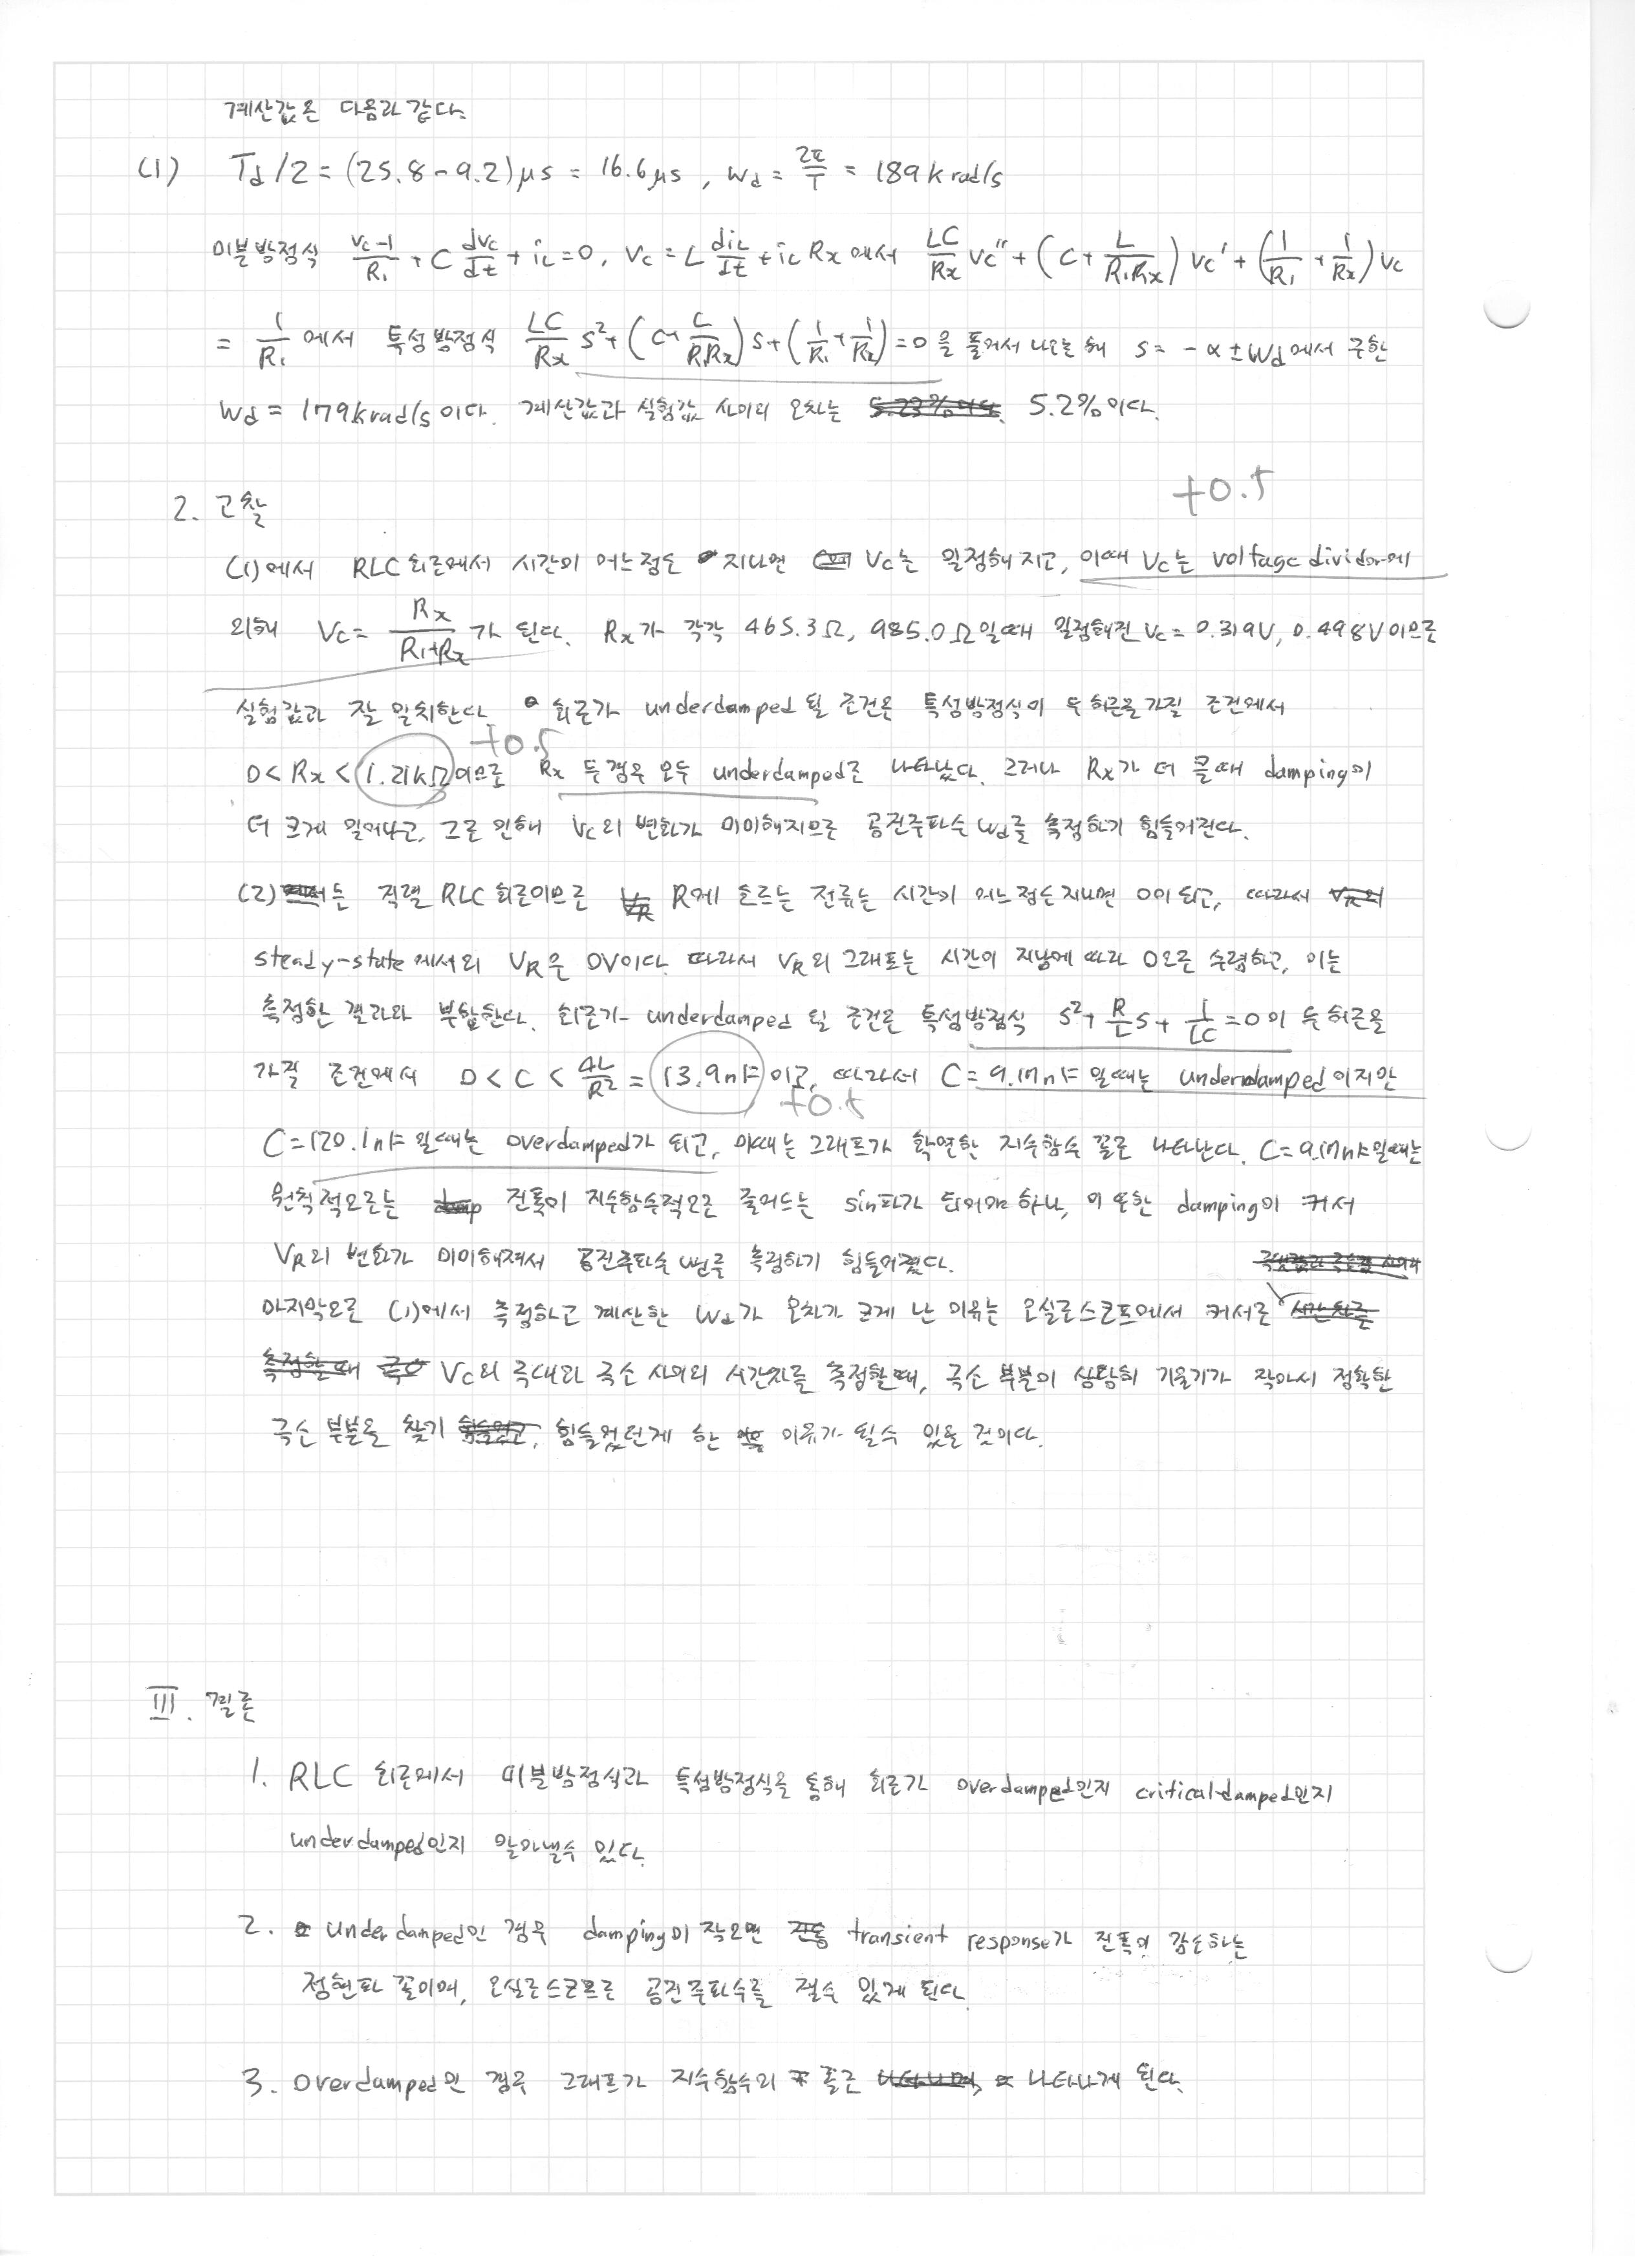 계산값은 다음과 같다.
(1) Td/2 = (25.8-9.2)μs = 16.6μs, wd = 2π/T = 189k rad/s
미분방정식 (vc-1)/R1 + C dvc/dt + iL = 0, Vc = L diL/dt + iL Rx 에서 LC/Rx Vc'' + (C + L/R1Rx) Vc' + (1/R1 + 1/Rx) Vc
= 1/R1 에서 특성방정식 LC/Rx s² + (C + L/R1Rx) s + (1/R1 + 1/Rx) = 0 을 풀어서 나오는 해 s = -α ± wd 에서 구한
wd = 179krad/s 이다. 계산값과 실험값 사이의 오차는 5.2%이다.
+0.5
2. 고찰
(1)에서 RLC 회로에서 시간이 어느정도 지나면 Vc는 일정해지고, 이때 Vc는 voltage divider에
의해 Vc = Rx/(R1+Rx) 가 된다. Rx가 각각 465.3Ω, 985.0Ω일때 일정해진 Vc = 0.319V, 0.498V이므로
실험값과 잘 일치한다. 회로가 underdamped 될 조건은 특성방정식이 두 허근을 가질 조건에서
+0.5
0 < Rx < 1.21kΩ이므로 Rx 두 경우 모두 underdamped로 나타났다. 그러나 Rx가 더 클때 damping이
더 크게 일어나고, 그로 인해 Vc의 변화가 미미해지므로 공진주파수 wd를 측정하기 힘들어진다.
(2)는 직렬 RLC 회로이므로 R에 흐르는 전류는 시간이 어느정도 지나면 0이 되고, 따라서
steady-state에서의 VR은 0V이다. 따라서 VR의 그래프는 시간이 지남에 따라 0으로 수렴하고, 이는
측정한 결과와 부합한다. 회로가 underdamped 될 조건은 특성방정식 s² + R/L s + 1/LC = 0 이 두 허근을
가질 조건에서 0 < C < 4L/R² = 13.9nF 이고, 따라서 C = 9.17nF 일때는 underdamped 이지만
+0.5
C = 120.1nF 일때는 overdamped가 되고, 이때는 그래프가 확연한 지수함수 꼴로 나타난다. C = 9.17nF일때는
원칙적으로는 진폭이 지수함수적으로 줄어드는 sin파가 되어야 하나, 이 또한 damping이 커서
VR의 변화가 미미해져서 공진주파수 wd를 측정하기 힘들어졌다.
마지막으로 (1)에서 측정하고 계산한 wd가 오차가 크게 난 이유는 오실로스코프에서 커서로
Vc의 극대와 극소 사이의 시간차를 측정할때, 극소 부분이 상당히 기울기가 작아서 정확한
극소 부분을 찾기 힘들었던게 한 이유가 될수 있을 것이다.
III. 결론
1. RLC 회로에서 미분방정식과 특성방정식을 통해 회로가 overdamped인지 critical-damped인지
underdamped인지 알아낼수 있다.
2. underdamped인 경우 damping이 작으면 transient response가 진폭이 감소하는
정현파 꼴이며, 오실로스코프로 공진주파수를 잴수 있게 된다.
3. overdamped인 경우 그래프가 지수함수의 꼴로 나타나게 된다.